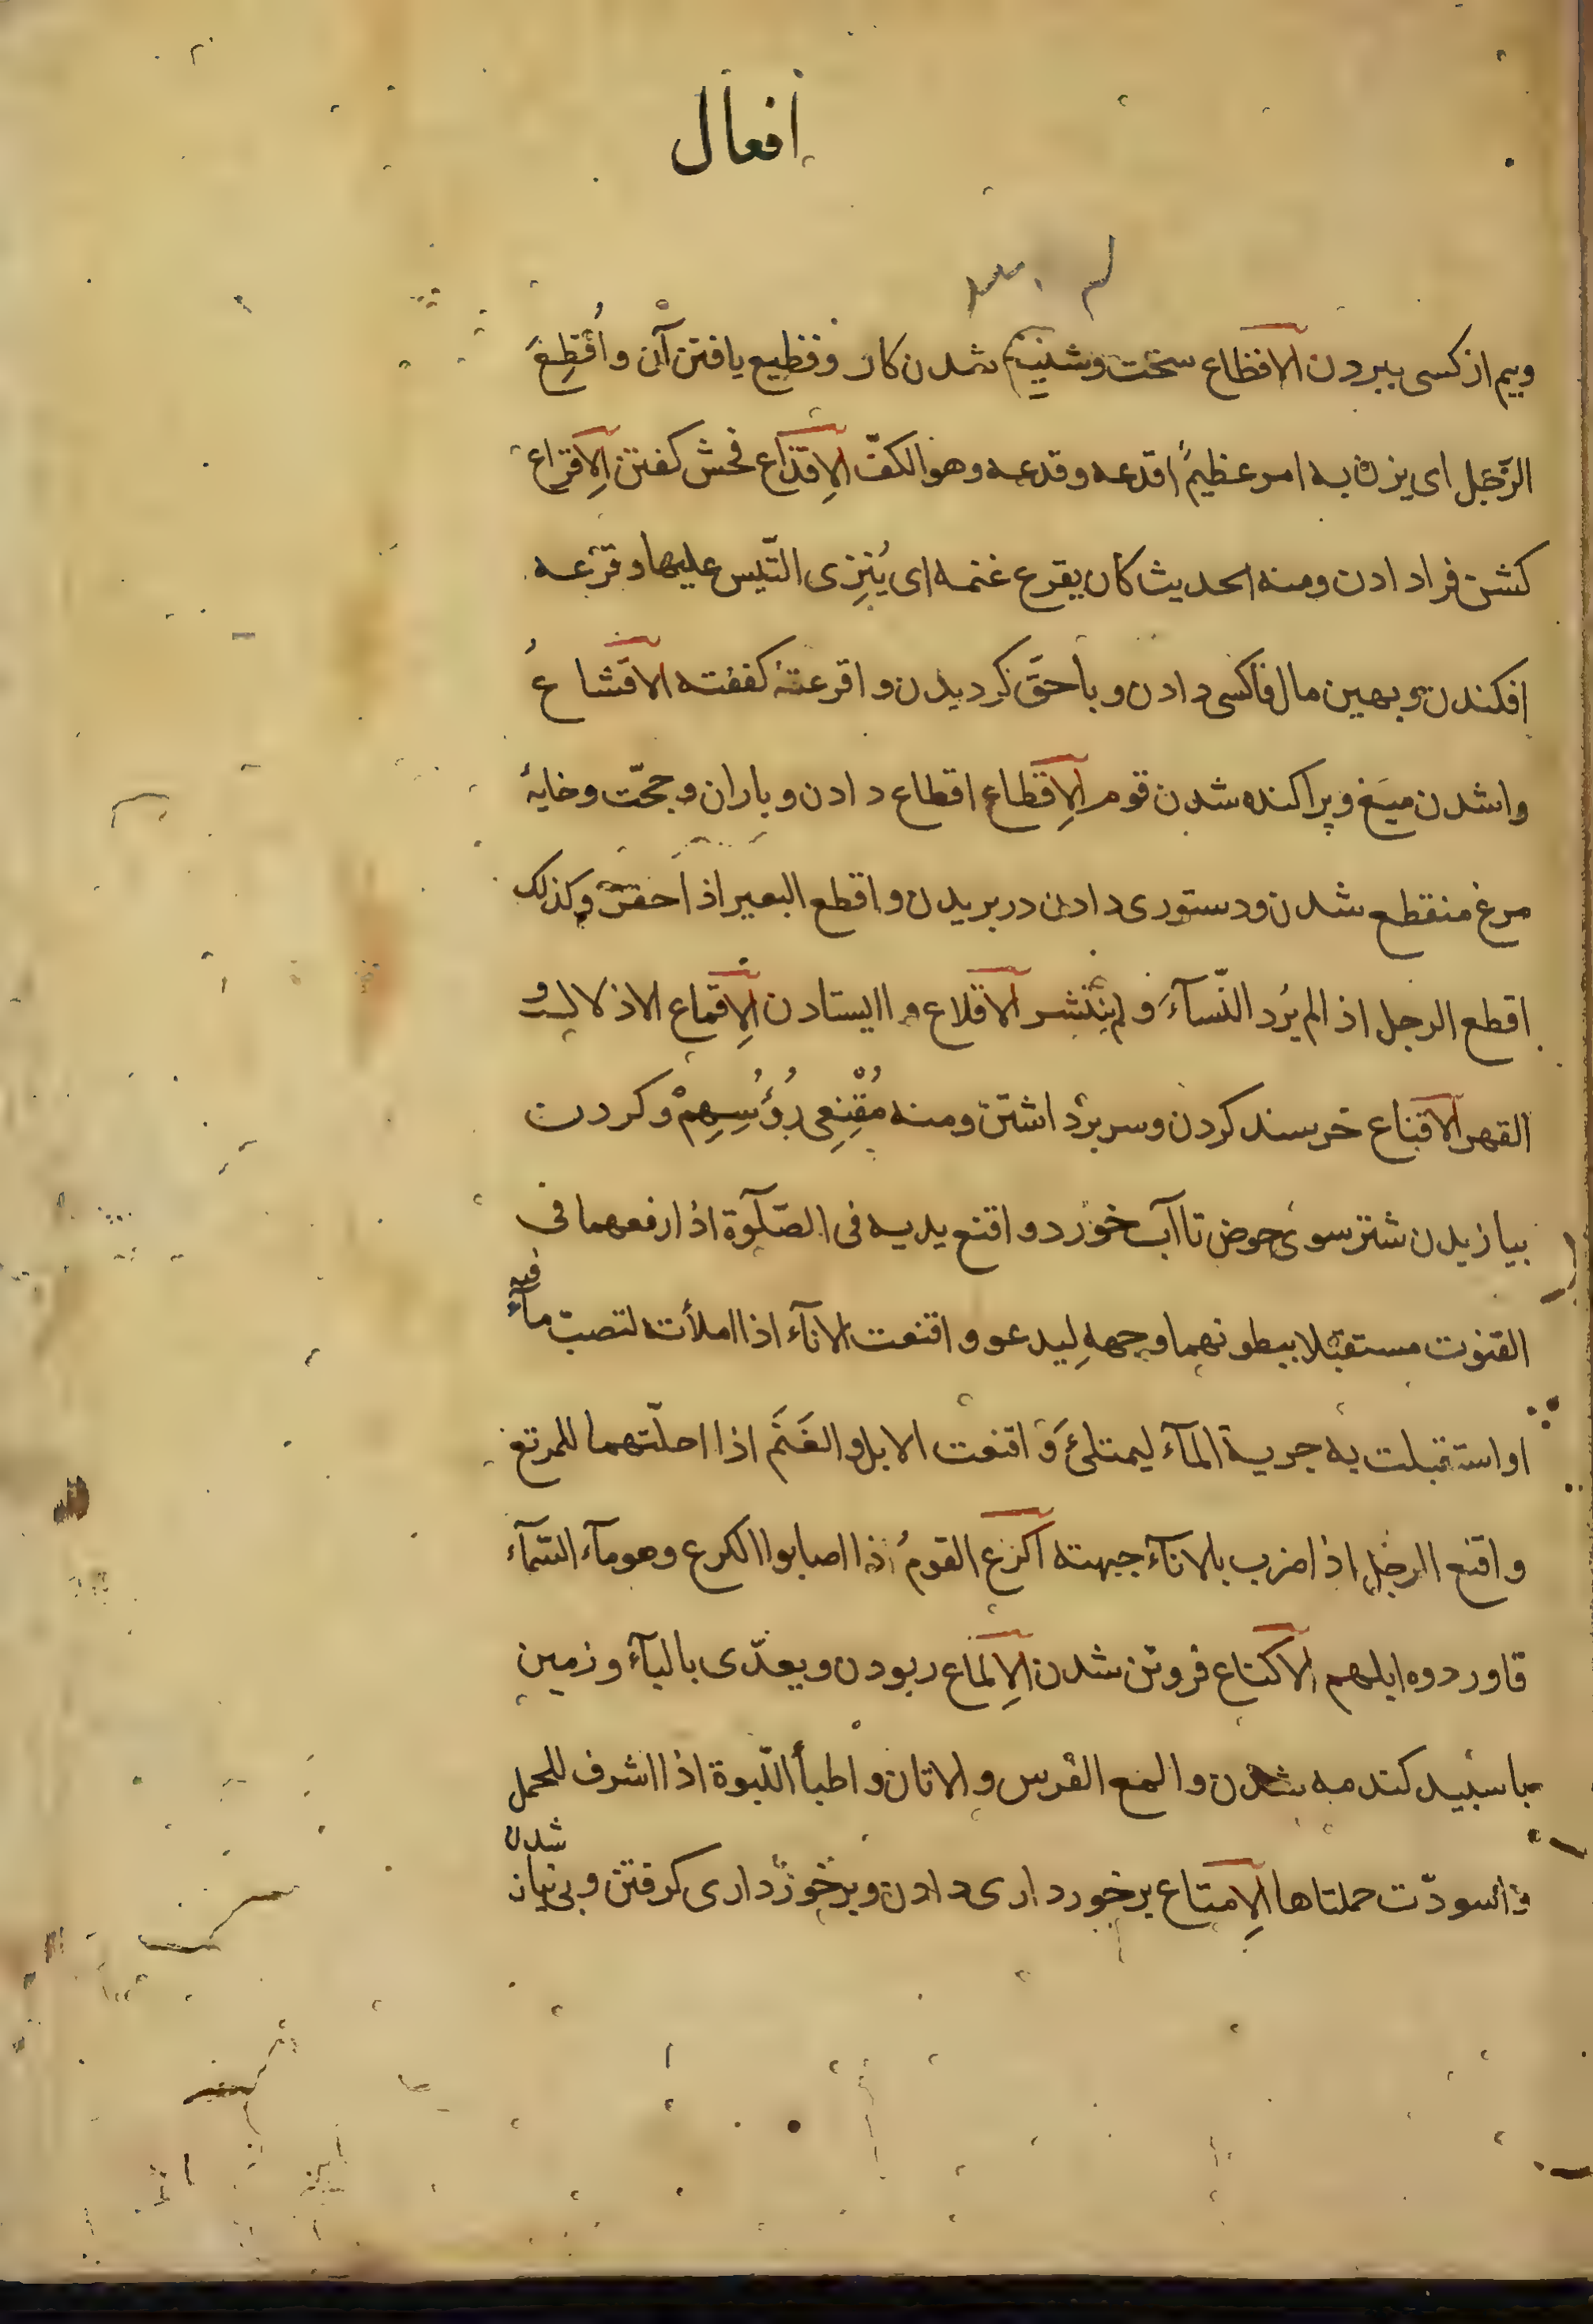 افعال
وبیم از کسی ببردن الافظاع سخت وشنیع شدن کار وفظیع یافتن آن واُفْظِعَ
الرّجل ای نزل به امر عظیمٌ اقدعه وقدعه وهو الکفّ الاِقْذاع فحش کفتن الاِقراع
کشن فرا دادن ومنه الحدیث کان یقرع غنمه ای یُنْزِی التّیس علیها وقرعه
افکندن وبهین مال فا کسی دادن و با حقّ کردیدن واقرعته کففته الاقشاعُ
واشدن میغ وپراکنده شدن قوم الاِقطاع اقطاع دادن وباران وحجّت وخایهٔ
مرغ منقطع شدن ودستوری دادن در بریدن واقطع البعیر اذا جفر وکذلک
اقطع الرجل اذا لم یُرد النّسآءَ ولم ینتشر الاقلاع وا ایستادن الاِقماع الاذلال و
القهر الاقناع خرسند کردن وسر برداشتن ومنه مُقْنِعِی رُؤُسِهِمْ و کردن
بیازیدن شتر سوی حوض تا آب خورد و اقنع یدیه فی الصّلوة اذا رفعهما فی
القنوت مستقبلا ببطونهما وجههِ لیدعو و اقنعت الاناء اذا املأته لتصبّ مآءً فیه
او استقبلت به جریة المآء لیمتلئَ وَ اقنعت الابل والغَنَم اذا احلّتهما للمرتع
واقنع الرجل اذا ضرب بالانآء جبهته اکرع القومُ اذا اصابوا الکرع وهو مآء السّمآء
فاوردوه ابلهم الاکناع فروتن شدن الاِلماع ربودن ویعدّی بالبآء وزمین
با سبید کندمه شدن والمع الفرس والاتان واطبأ اللّبوة اذا اشرف للحمل
واسودّت حملتاها الاِمتاع برخورداری دادن وبرخورداری کرفتن و بی نیاز شدن